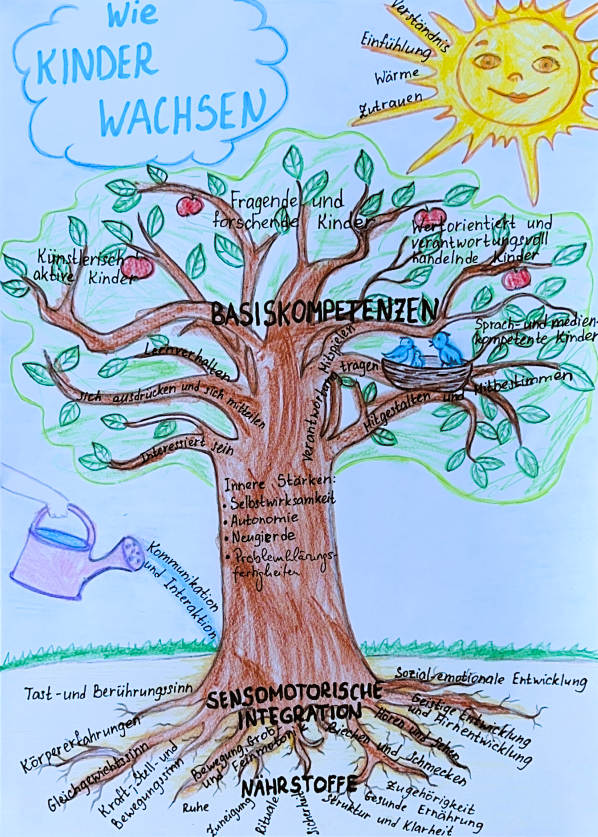 Wie
KINDER
WACHSEN
Verständnis
Einfühlung
Wärme
Zutrauen
Fragende und
forschende Kinder
Wertorientiert und
verantwortungsvoll
handelnde Kinder
Künstlerisch
aktive Kinder
BASISKOMPETENZEN
Sprach- und medien-
kompetente Kinder
Lernverhalten
sich ausdrücken und sich mitteilen
Interessiert sein
Mitspielen
Verantwortung
tragen
Mitgestalten und Mitbestimmen
Innere Stärken:
• Selbstwirksamkeit
• Autonomie
• Neugierde
• Problemklärungs-
fertigkeiten
Kommunikation
und Interaktion
SENSOMOTORISCHE
INTEGRATION
Tast- und Berührungssinn
Körpererfahrungen
Gleichgewichtssinn
Kraft-, Stell- und
Bewegungssinn
Bewegung, Grob-
und Feinmotorik
Riechen und Schmecken
Hören und Sehen
Geistige Entwicklung
und Hirnentwicklung
Sozial-emotionale Entwicklung
NÄHRSTOFFE
Ruhe
Zuneigung
Rituale
Sicherheit
Struktur und Klarheit
Gesunde Ernährung
Zugehörigkeit